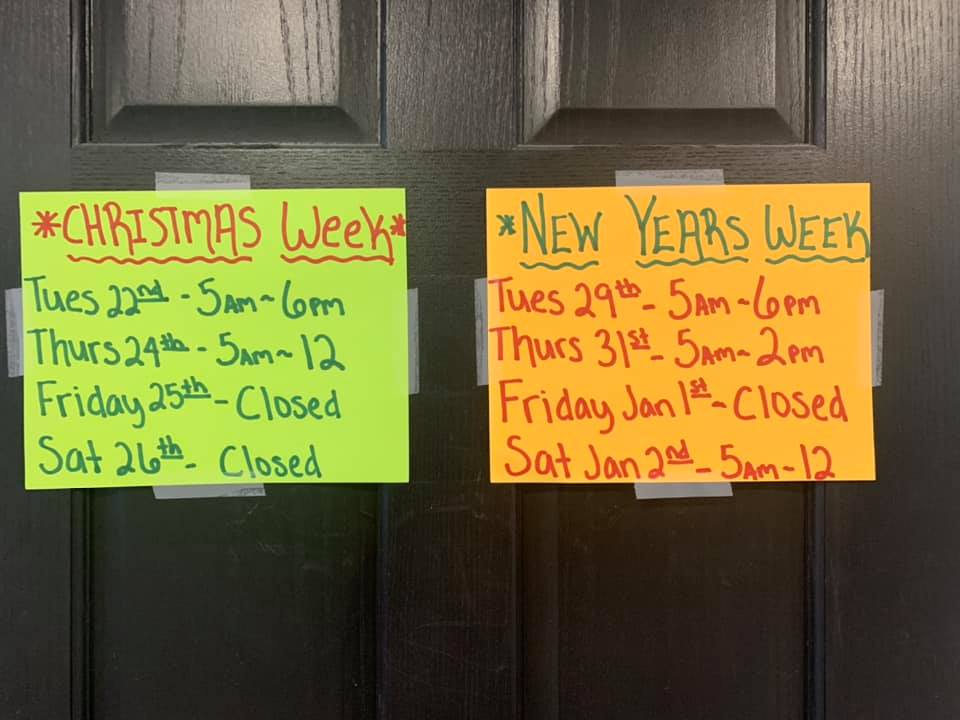 *CHRISTMAS Week*
Tues 22nd - 5Am~6pm
Thurs 24th - 5Am~12
Friday 25th - Closed
Sat 26th - Closed
*NEW YEARS WEEK
Tues 29th - 5Am~6pm
Thurs 31st - 5Am~2pm
Friday Jan 1st ~ Closed
Sat Jan 2nd - 5Am~12